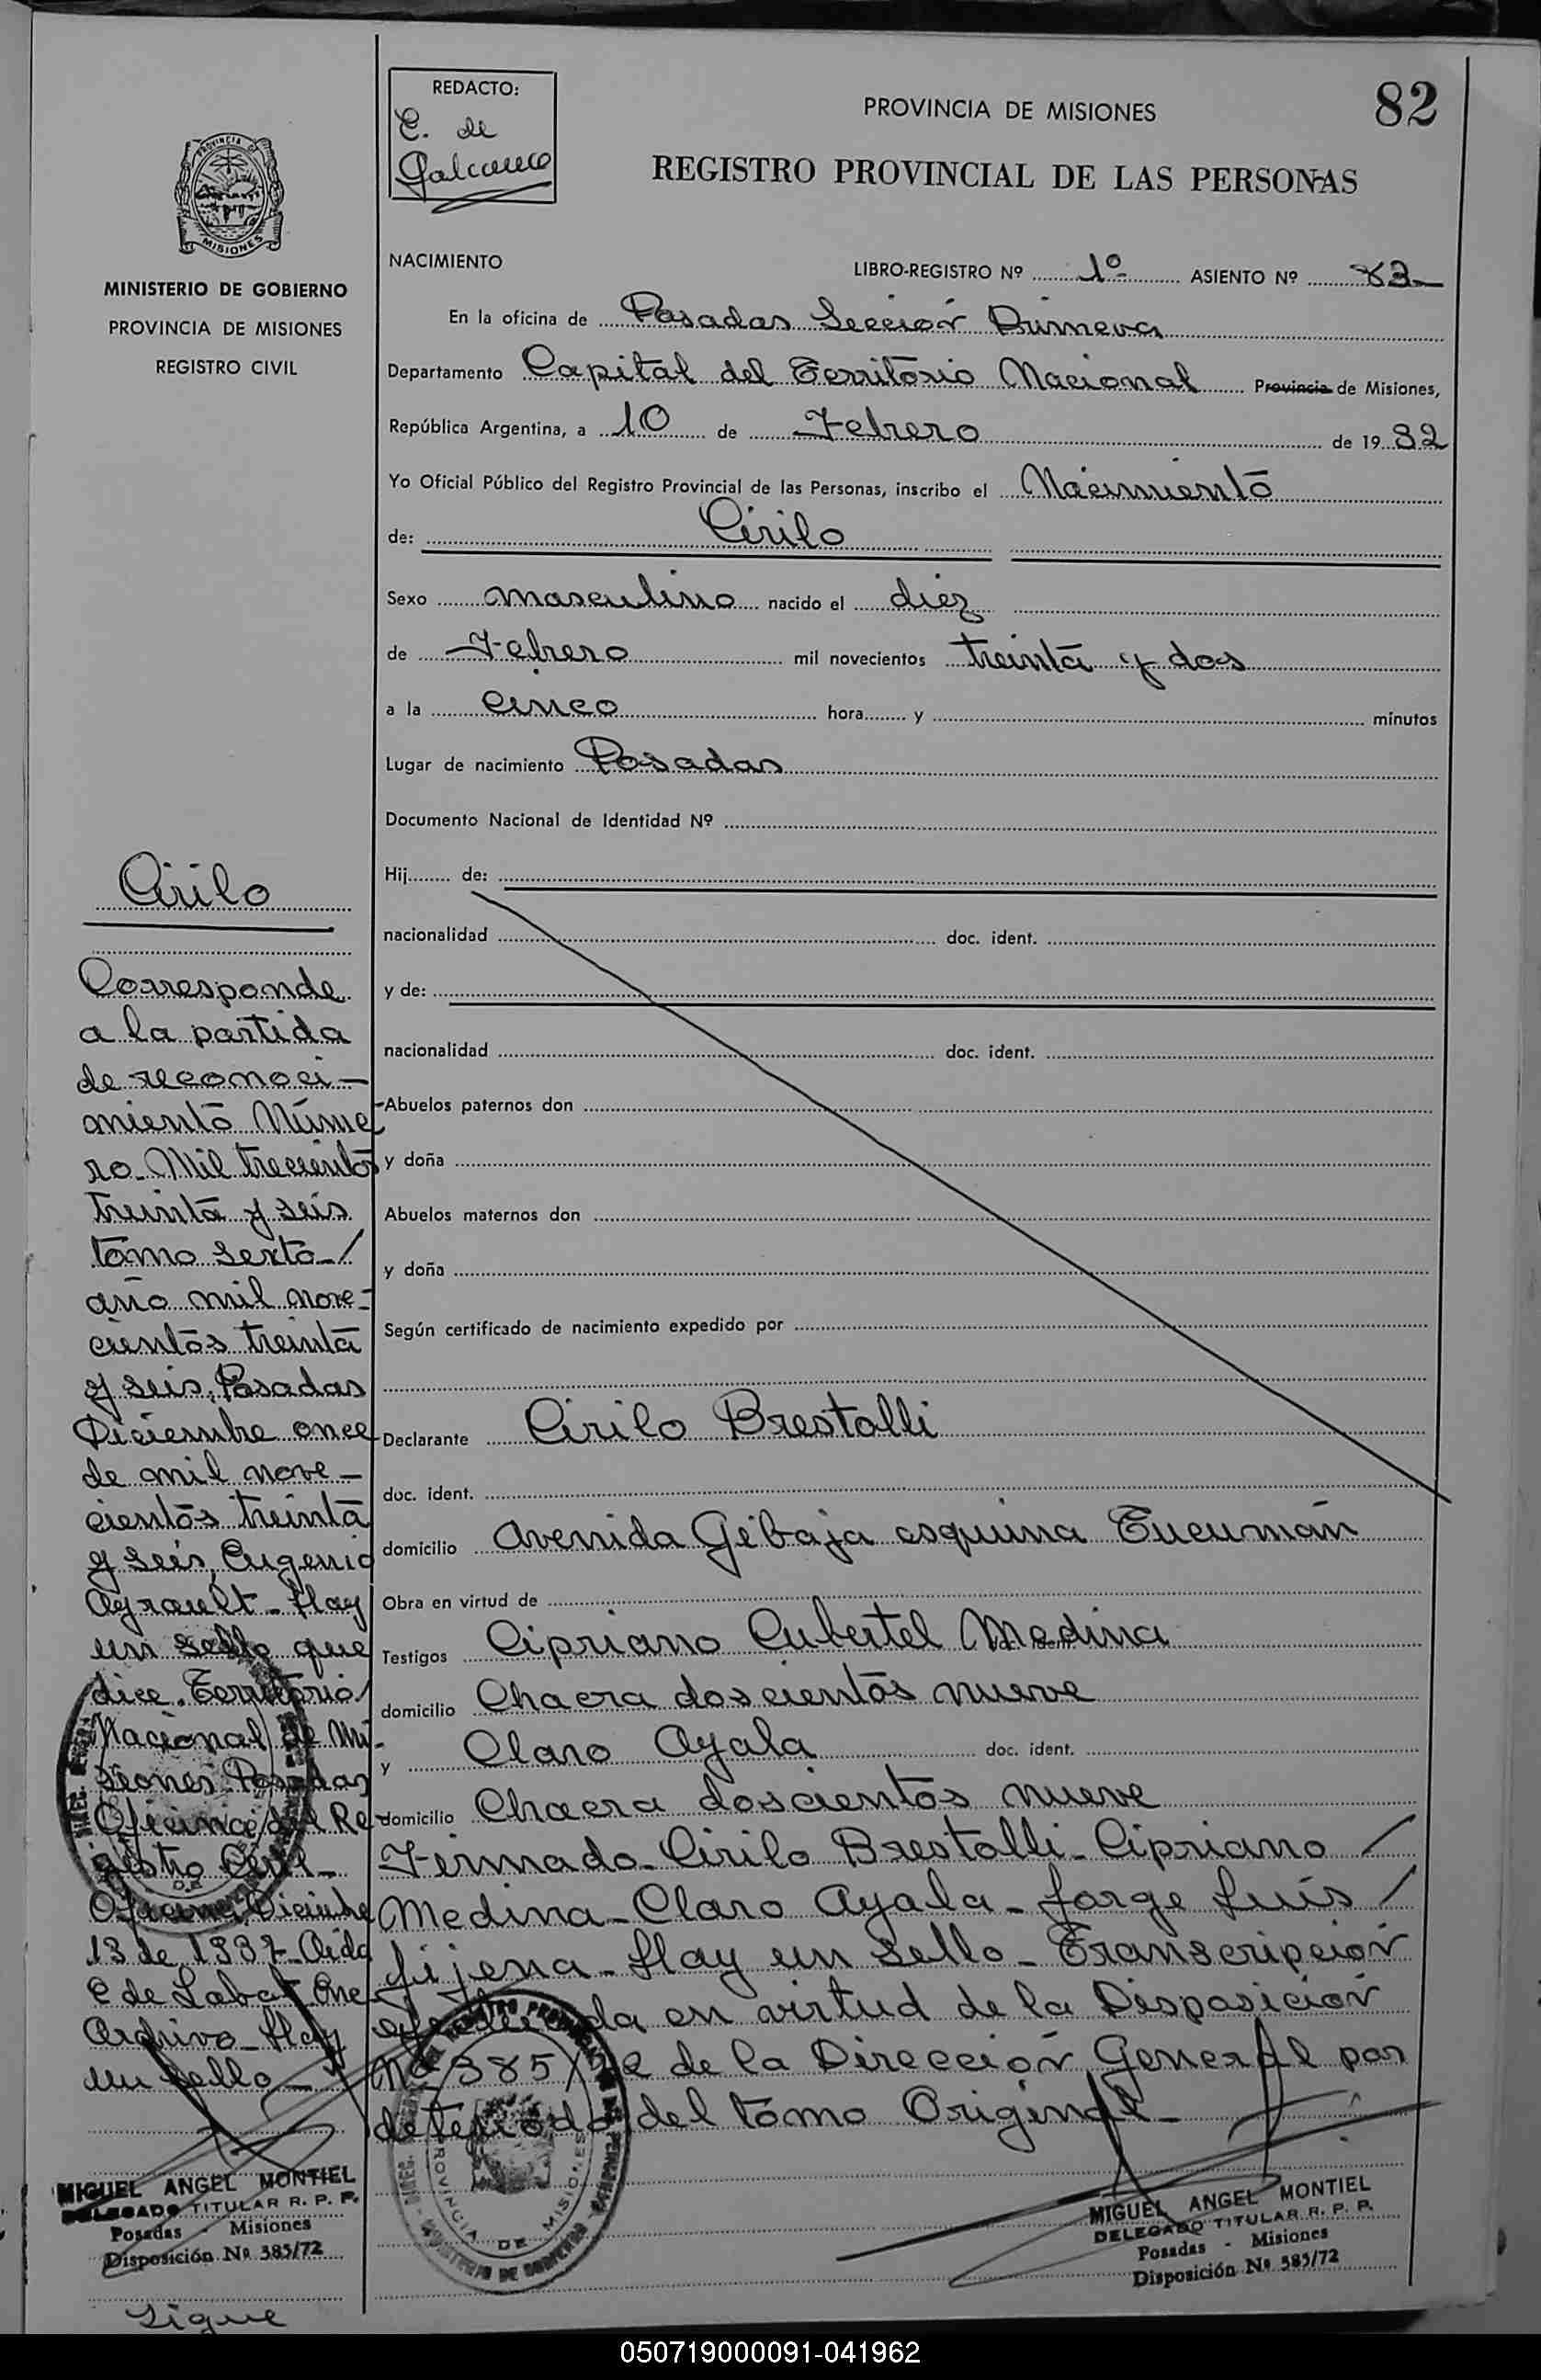 REDACTO:
C. de
Galeano
PROVINCIA DE MISIONES
82
REGISTRO PROVINCIAL DE LAS PERSONAS
PROVINCIA DE
MISIONES
MINISTERIO DE GOBIERNO
PROVINCIA DE MISIONES
REGISTRO CIVIL
NACIMIENTO
LIBRO-REGISTRO Nº 1º ASIENTO Nº 83
En la oficina de Posadas Sección Primera
Departamento Capital del Territorio Nacional Provincia de Misiones,
República Argentina, a 10 de Febrero de 1932
Yo Oficial Público del Registro Provincial de las Personas, inscribo el Nacimiento
de: Cirilo
Sexo masculino nacido el diez
de Febrero mil novecientos treinta y dos
a la cinco hora y minutos
Lugar de nacimiento Posadas
Documento Nacional de Identidad Nº
Hij de:
nacionalidad doc. ident.
y de:
nacionalidad doc. ident.
Abuelos paternos don
y doña
Abuelos maternos don
y doña
Según certificado de nacimiento expedido por
Declarante Cirilo Brestolli
doc. ident.
domicilio Avenida Gibaja esquina Tucumán
Obra en virtud de
Testigos Cipriano Cubertel Medina
domicilio Chacra doscientos nueve
y Claro Ayala doc. ident.
domicilio Chacra doscientos nueve
Firmado - Cirilo Brestolli - Cipriano /
Medina - Claro Ayala - Jorge Luis /
Jijena - Hay un sello - Transcripción
efectuada en virtud de la Disposición
Nº 385/72 de la Dirección General por
deterioro del tomo Original -
MIGUEL ANGEL MONTIEL
DELEGADO TITULAR R. P. P.
Posadas - Misiones
Disposición Nº 385/72
Cirilo
Corresponde
a la partida
de reconoci-
miento Núme-
ro - Mil trecientos
treinta y seis
tomo sexto - /
año mil nove-
cientos treinta
y seis, Posadas
Diciembre once
de mil nove-
cientos treinta
y seis, Eugenio
Ayrault - Hay
un sello que
dice. Territorio
Nacional de Mi-
siones - Posadas
Oficina del Re-
gistro Civil -
13 de 1937 - Aida
C de Labat
Archivo - Hay
un sello -
MIGUEL ANGEL MONTIEL
DELEGADO TITULAR R. P. P.
Posadas - Misiones
Disposición Nº 385/72
Sigue
050719000091-041962